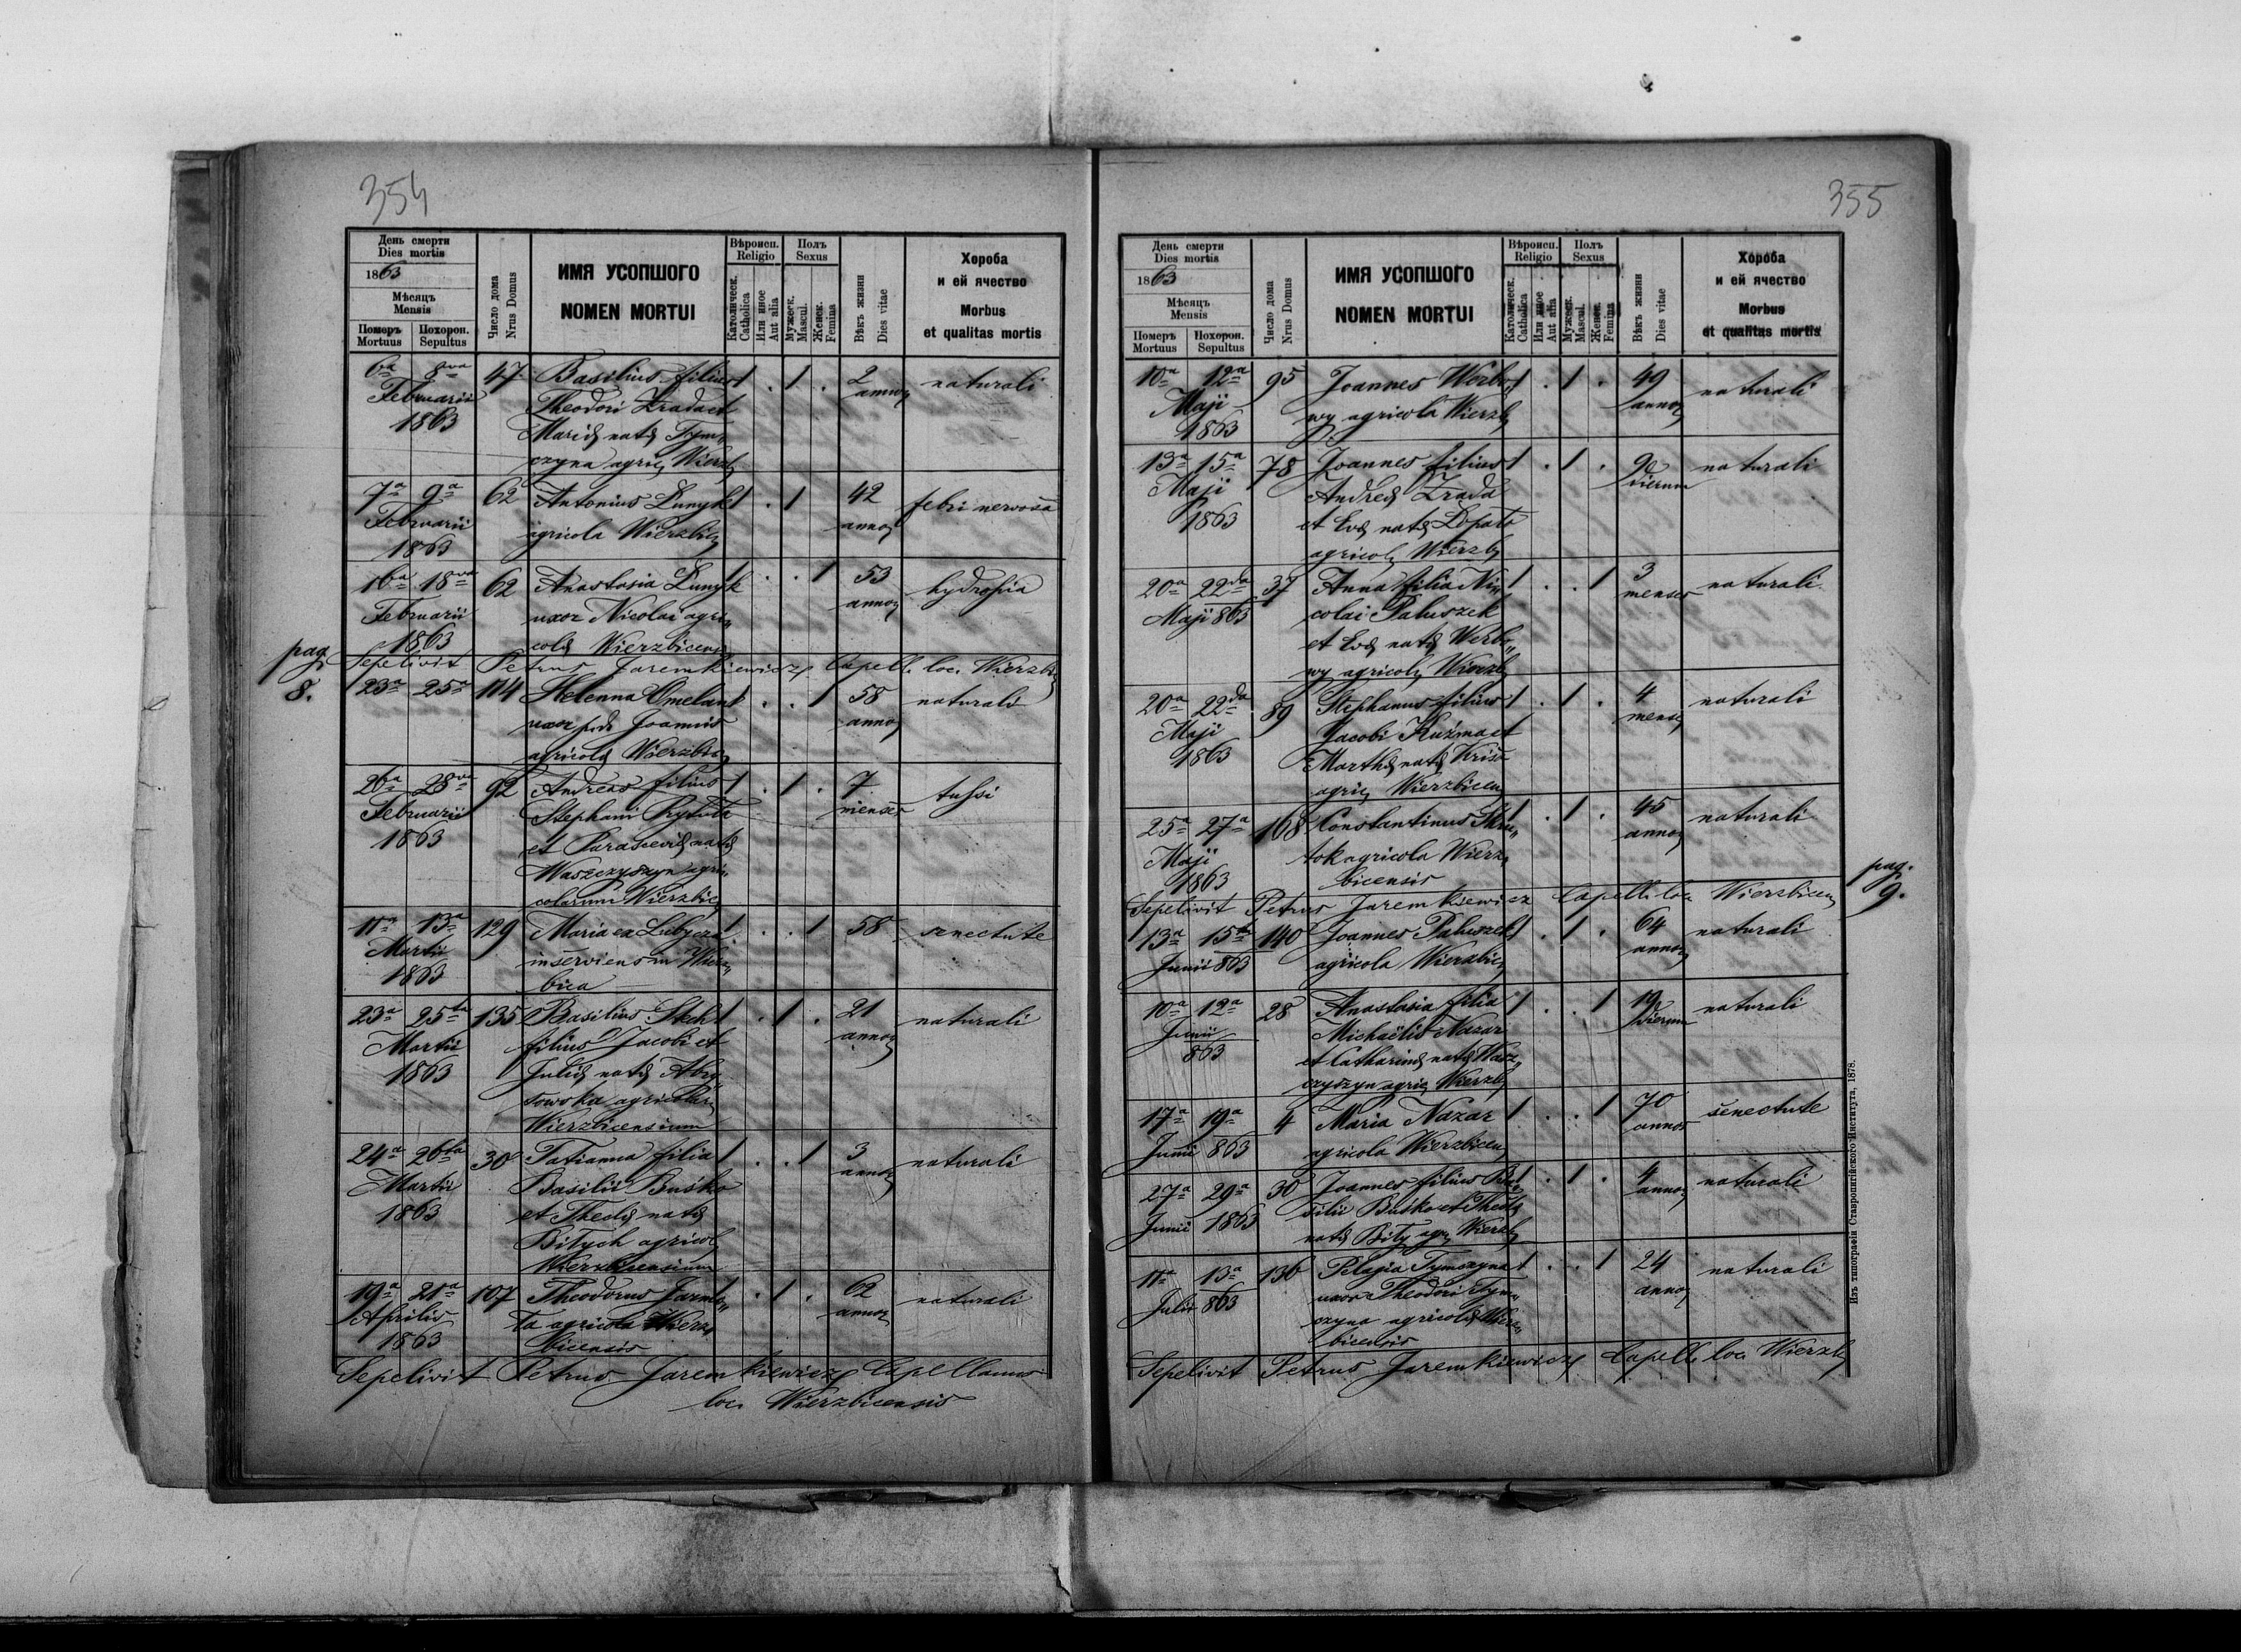 354
День смерти
Dies mortis
1863
Мѣсяцъ
Mensis
Померъ
Mortuus
Похорон.
Sepultus
Число дома
Nrus Domus
ИМЯ УСОПШОГО
NOMEN MORTUI
Вѣроисп.
Religio
Католическ.
Catholica
Или иное
Aut alia
Полъ
Sexus
Мужеск.
Mascul.
Женск.
Femina
Вѣкъ жизни
Dies vitae
Хороба
и ей ячество
Morbus
et qualitas mortis
6a 8va 47 Basilius filius 1 . 1 . 2 naturali
Februarii Theodori Zrada et annor
1863 Mariæ natæ Tym„
czyna agric Wierzb
7a 9a 62 Antonius Lunyk 1 . 1 42 febri nervosa
Februarii agricola Wierzbic annor
1863
16a 18va 62 Anastasia Lunyk 1 . . 1 53 hydropia
Februarii uxor Nicolai agri„ annor
1863 colæ Wierzbicens
pag
8.
Sepelivit Petrus Jaremkiewicz Capell. loc. Wierzbic
23a 25a 114 Helenna Omelan 1 . . 1 58 naturali
uxor Joannis annor
agricolæ Wierzbic
26a 28va 92 Andreas filius 1 . 1 . 7 tussi
Februarii Stephani Prytuła menses
1863 et Parasceviæ natæ
Waszczyszyn agri„
colarum Wierzbic
11a 13a 129 Maria ex Lubycza 1 . . 1 58 senectute
Martii inserviens in Wierz„
1863 bica
23a 25ta 135 Basilius Stech 1 . 1 . 21 naturali
Martii filius Jacobi et annor
1863 Juliæ natæ
sowska agricolar
Wierzbicensium
24a 26ta 30 Tatianna filia 1 . . 1 3 naturali
Martii Basilii Buśko annor
1863 et Theclæ natæ
Bitych agricol
Wierzbicensium
19a 21a 107 Theodorus Jarmo„ 1 . 1 . 62 naturali
Aprilis ta agricola Wierz„ annor
1863 bicensis
Sepelivit Petrus Jaremkiewicz Capellanus
loc. Wierzbicensis
355
День смерти
Dies mortis
1863
Мѣсяцъ
Mensis
Померъ
Mortuus
Похорон.
Sepultus
Число дома
Nrus Domus
ИМЯ УСОПШОГО
NOMEN MORTUI
Вѣроисп.
Religio
Католическ.
Catholica
Или иное
Aut alia
Полъ
Sexus
Мужеск.
Mascul.
Женск.
Femina
Вѣкъ жизни
Dies vitae
Хороба
и ей ячество
Morbus
et qualitas mortis
10a 12a 95 Joannes Werbo„ 1 . 1 . 49 naturali
Maji wy agricola Wierzb annor
1863
13a 15a 78 Joannes filius 1 . 1 . 9 naturali
Maji Andreæ Zrada dierum
1863 et Evæ natæ Łopato
agricol Wierzb
20a 22da 37 Anna filia Ni„ 1 . . 1 3 naturali
Maji 863 colai Paluszek menses
et Evæ natæ Werbo„
wy agricol Wierzb
20a 22da 89 Stephanus filius 1 . 1 . 4 naturali
Maji Jacobi Kuźma et mens
1863 Marthæ natæ Krisa
agric Wierzbicen
25a 27a 168 Constantinus 1 . 1 . 45 naturali
Maji tok agricola Wierz„ annor
1863 bicensis
pag.
9.
Sepelivit Petrus Jaremkiewicz Capell. loc. Wierzbicen
13a 15ta 140 Joannes Paluszek 1 . 1 . 64 naturali
Junii 863 agricola Wierzbic annor
10a 12a 28 Anastasia filia 1 . . 1 19 naturali
Junii Michaëlis Nazar dierum
863 et Catharinæ natæ Wasz„
czyszyn agric Wierzb
17a 19a 4 Maria Nazar 1 . . 1 70 senectute
Junii 863 agricola Wierzbicen annos
27a 29a 30 Joannes filius Ba„ 1 . 1 . 4 naturali
Junii 1863 silii Buśko et Theclæ annor
natæ Bity agr Wierzb
11a 13a 136 Pelagia Tymczyna 1 . . 1 24 naturali
Julii 863 uxor Theodori Tym„ annor
czyna agricolæ Wierz„
bicensis
Sepelivit Petrus Jaremkiewicz Capell. loc. Wierzb
Изъ типографіи Ставропигійского Института, 1878.